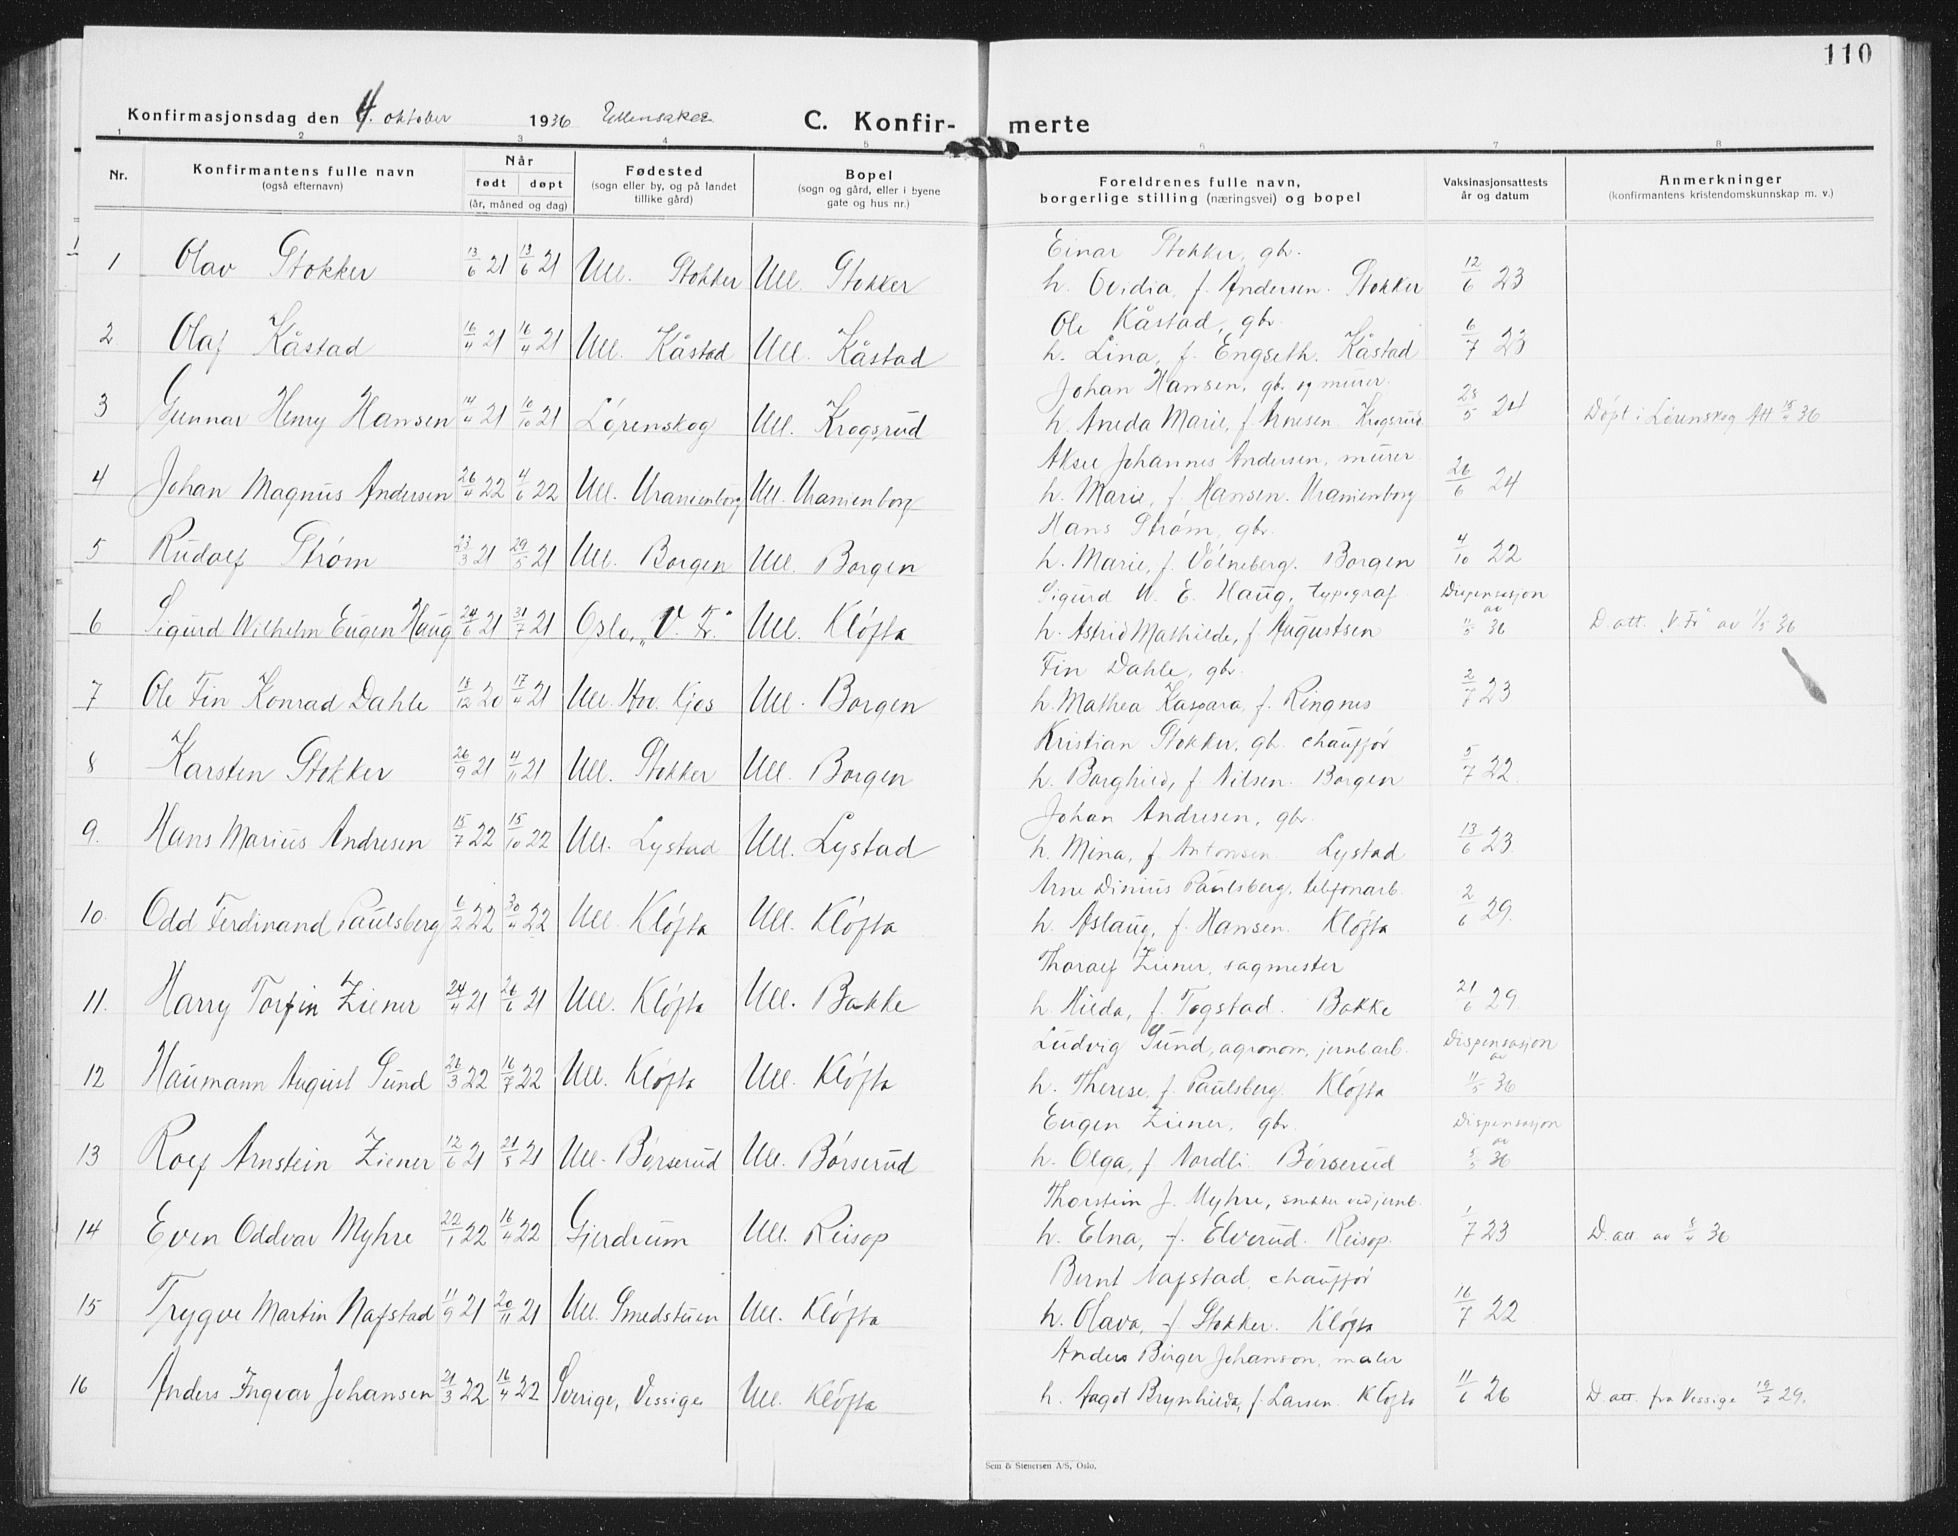 110
Konfirmasjonsdag den 4. oktober 1936 Ullensaker C. Konfir- merte
1 2 3 4 5 6 7 8
Nr. Konfirmantens fulle navn (også efternavn) Når født døpt (år, måned og dag) Fødested (sogn eller by, og på landet tillike gård) Bopel (sogn og gård, eller i byene gate og hus nr.) Foreldrenes fulle navn, borgerlige stilling (næringsvei) og bopel Vaksinasjonsattests år og datum Anmerkninger (konfirmantens kristendomskunnskap m. v.)
Einar Stokker, gbr.
1 Olav Stokker 13/6 21 13/6 21 Ull. Stokker Ull. Stokker h. Ovidia, f. Andersen. Stokker 12/6 23
Ole Kåstad, gbr.
2 Olaf Kåstad 16/4 21 16/4 21 Ull. Kåstad Ull. Kåstad h. Lina, f. Engseth. Kåstad 6/7 23
Johan Hansen, gbr. og murer.
3 Gunnar Henry Hansen 14/4 21 16/10 21 Lørenskog Ull. Krogsrud h. Aneda Marie, f. Arnesen Krogsrud 23/5 24 Døpt i Lørenskog Att 15/4 36
Aksel Johannes Andersen, murer.
4 Johan Magnus Andersen 26/4 22 4/6 22 Ull. Uranienborg Ull. Uranienborg h. Marie, f. Hansen. Uranienborg 26/6 24
Hans Strøm, gbr.
5 Rudolf Strøm 23/3 21 29/5 21 Ull. Borgen Ull. Borgen h. Marie, f. Volneberg. Borgen 4/10 22
Sigurd W. E. Haug, typograf Dispensasjon av
6 Sigurd Wilhelm Eugen Haug 24/6 21 31/7 21 Oslo, "V. Fr." Ull. Kløfta h. Astrid Mathilde, f. Augustsen 11/5 36 D. att. "V. Fr" av 1/5 36
Fin Dahle, gbr.
7 Ole Fin Konrad Dahle 18/12 20 17/4 21 Ull. Hov. Kjos Ull. Borgen h. Mathea Kaspara, f. Ringnes 2/7 23
Kristian Stokker, gbr. chauffør
8 Karsten Stokker 26/9 21 4/11 21 Ull. Stokker Ull. Borgen h. Borghild, f. Nilsen. Borgen 5/7 22
Johan Andresen, gbr.
9. Hans Marius Andresen 15/7 22 15/10 22 Ull. Lystad Ull. Lystad h. Mina, f. Antonsen. Lystad 13/6 23
Arne Dinius Paulsberg, telefonarb.
10. Odd Ferdinand Paulsberg 6/2 22 30/4 22 Ull. Kløfta Ull. Kløfta h. Aslaug, f. Hansen. Kløfta 2/6 29.
Thoralf Ziener, sagmester
11. Harry Torfin Ziener 24/4 21 26/6 21 Ull. Kløfta Ull. Bakke h. Hilda, f. Togstad. Bakke 21/6 29.
Ludvig Sund, agronom, jernb.arb. Dispensasjon av
12 Haumann August Sund 26/3 22 16/7 22 Ull. Kløfta Ull. Kløfta h. Therese, f. Paulsberg. Kløfta 11/5 36
Eugen Ziener, gbr. Dispensasjon av
13 Rolf Arnstein Ziener 12/6 21 21/8 21 Ull. Børserud Ull. Børserud h. Olga, f. Nordli. Børserud 5/5 36
Thorstein J. Myhre, snekker ved jernb.
14 Even Oddvar Myhre 22/1 22 16/4 22 Gjerdrum Ull. Reisop h. Elna, f. Elverud. Reisop. 1/7 23 D. att. av 8/4 36
Bernt Nafstad, chauffør
15 Trygve Martin Nafstad 11/9 21 20/11 21 Ull. Smedstuen Ull. Kløfta h. Olava, f. Stokker. Kløfta 16/7 22
Anders Birger Johanson, maler
16 Anders Ingvar Johansen 21/3 22 16/4 22 Sverige, Vessige Ull. Kløfta h. Aagot Brynhilda, f. Larsen. Kløfta 11/6 26 D. att. fra Vessige 19/7 29.
Sem & Stenersen A/S, Oslo.